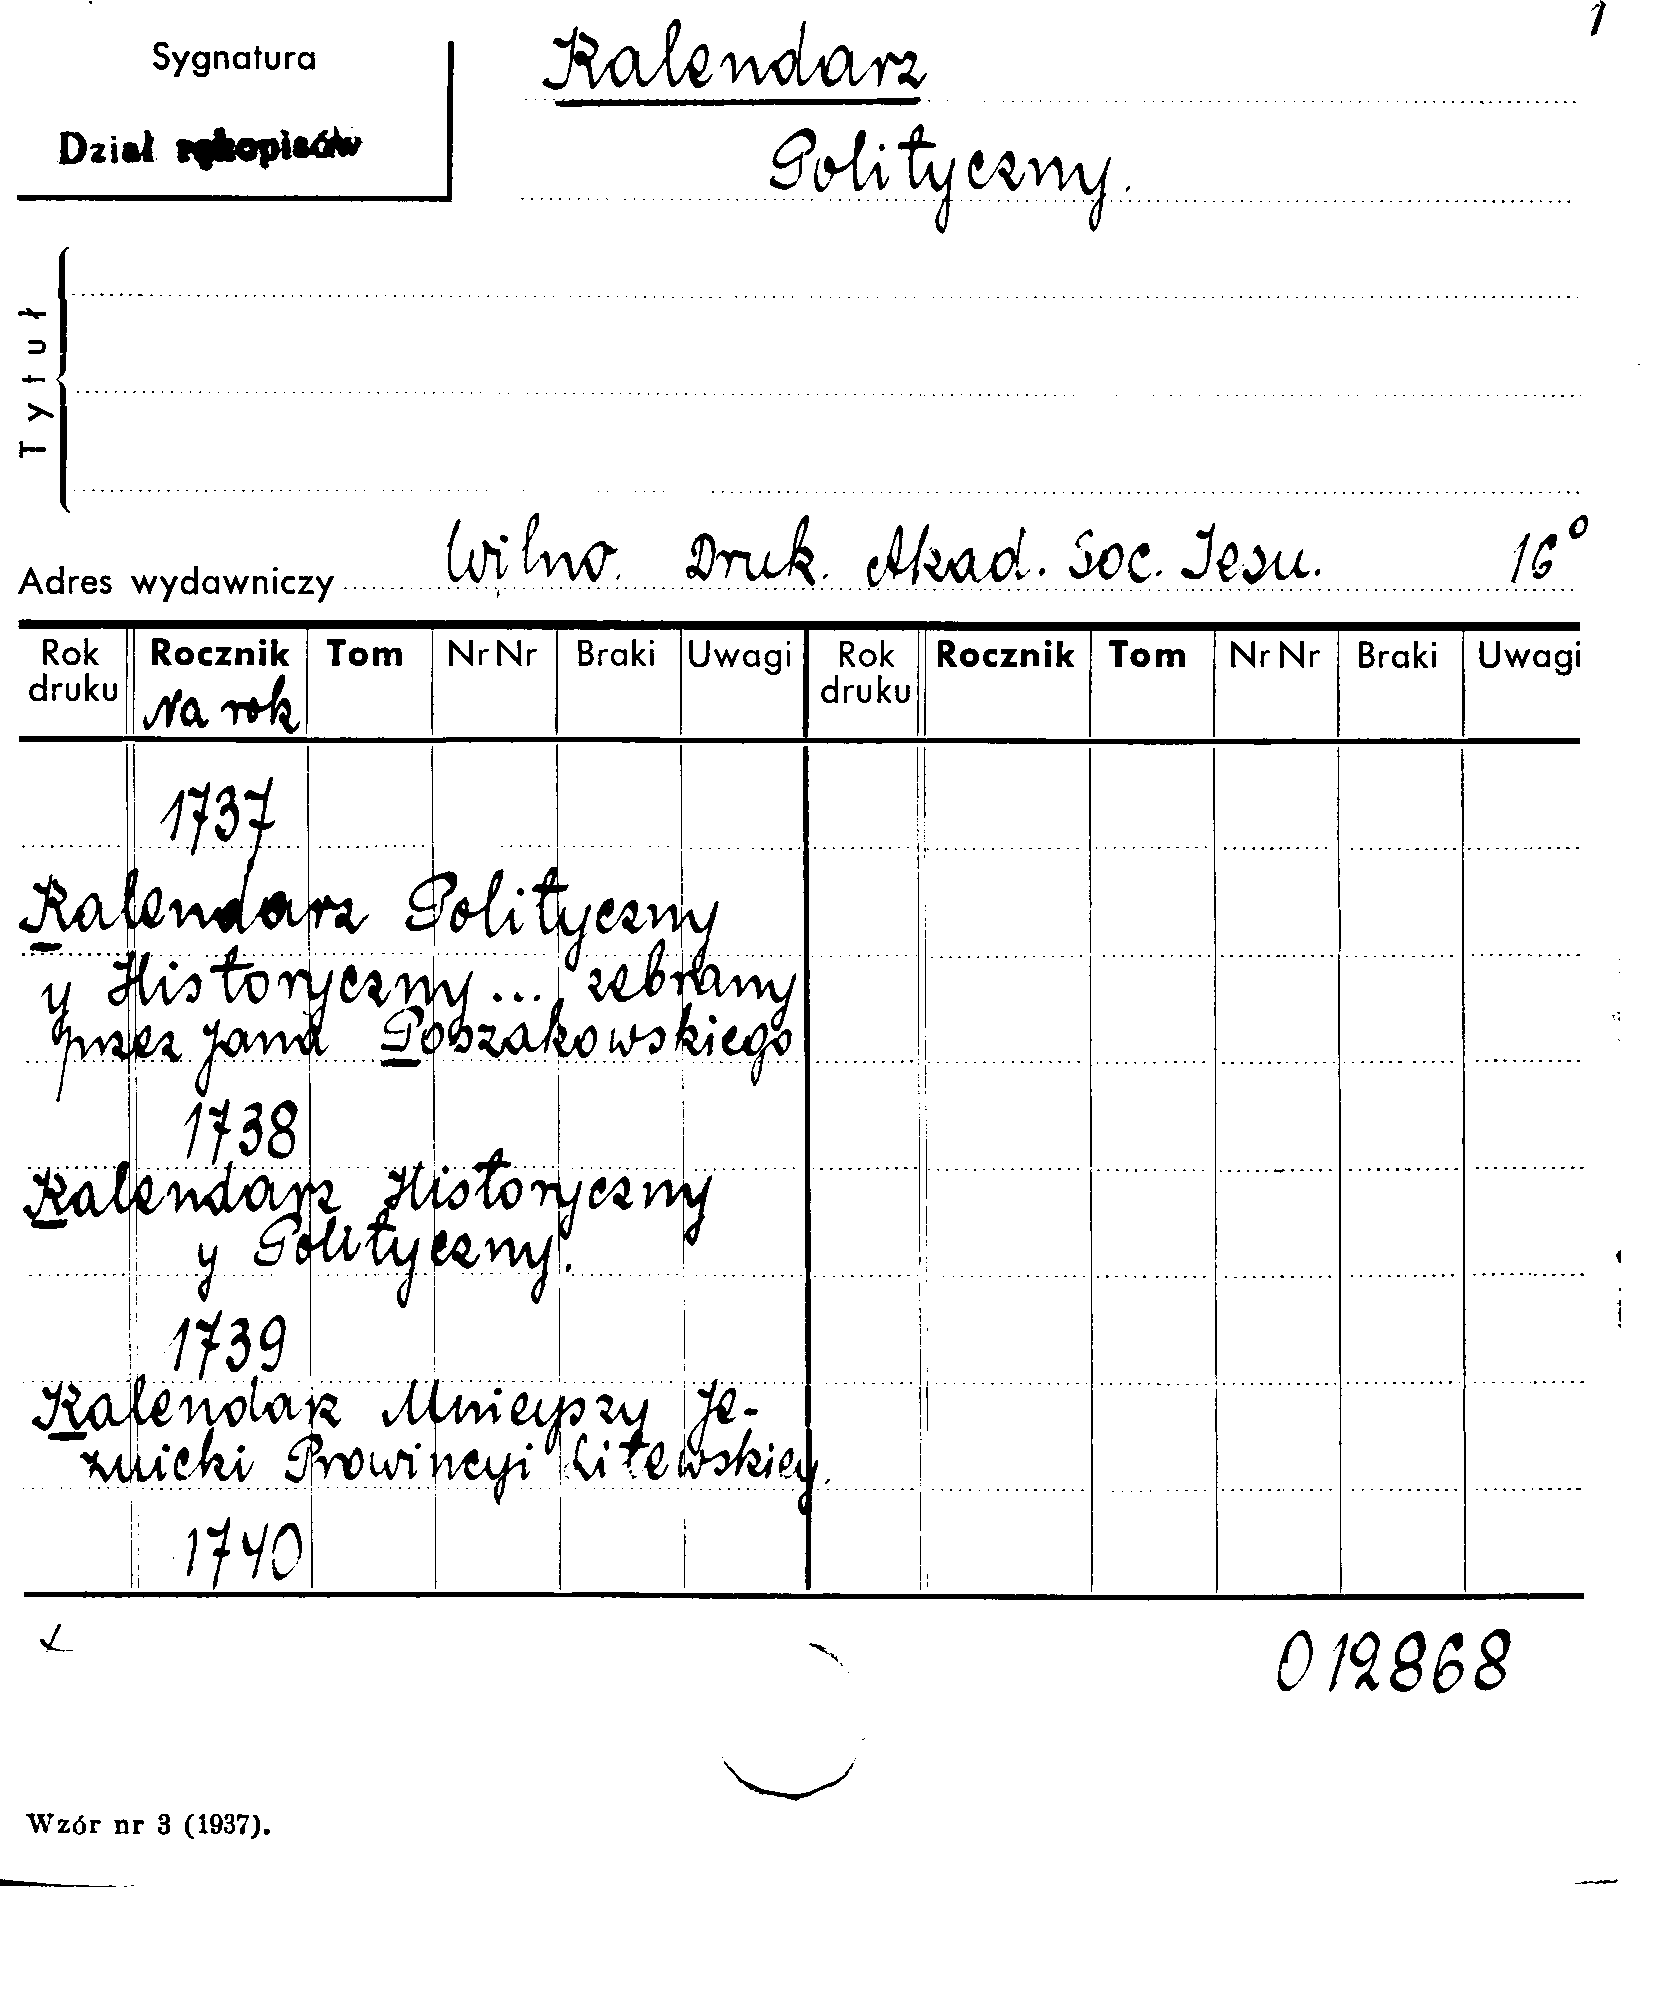 1
Sygnatura
Dział rękopisów
Kalendarz
Polityczny.
Tytuł
Adres wydawniczy Wilno. Druk. Akad. Soc. Jesu. 16°
Rok druku Rocznik Tom Nr Nr Braki Uwagi Rok druku Rocznik Tom Nr Nr Braki Uwagi
Na rok
1737
Kalendarz Polityczny
y Historyczny... zebrany
przez Jana Poszakowskiego
1738
Kalendarz Historyczny
y Polityczny.
1739
Kalendarz Mnieyszy Je-
zuicki Prowincyi Litewskiey.
1740
012868
Wzór nr 3 (1937).